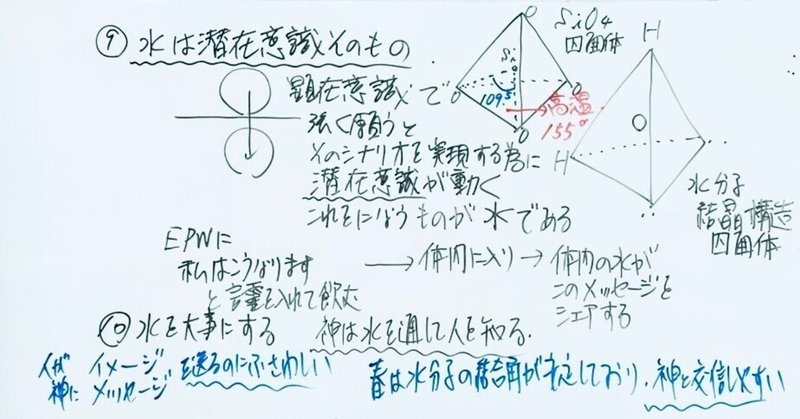 ⑨ 水は潜在意識そのもの
顕在意識で
強く願うと
そのシナリオを実現する為に
潜在意識が動く
これをになうものが水である
SiO4
四面体
O
Si
O
O
O
109.5°
高温
155°
H
O
H
水分子
結晶構造
四面体
EPWに
私はこうなります
と言霊を入れて飲む
→体内に入り→体内の水が
このメッセージを
シェアする
⑩水を大事にする 神は水を通して人を知る.
人が イメージ
神に メッセージ を送るのにふさわしい
春は水分子の結合角が安定しており、神と交信しやすい